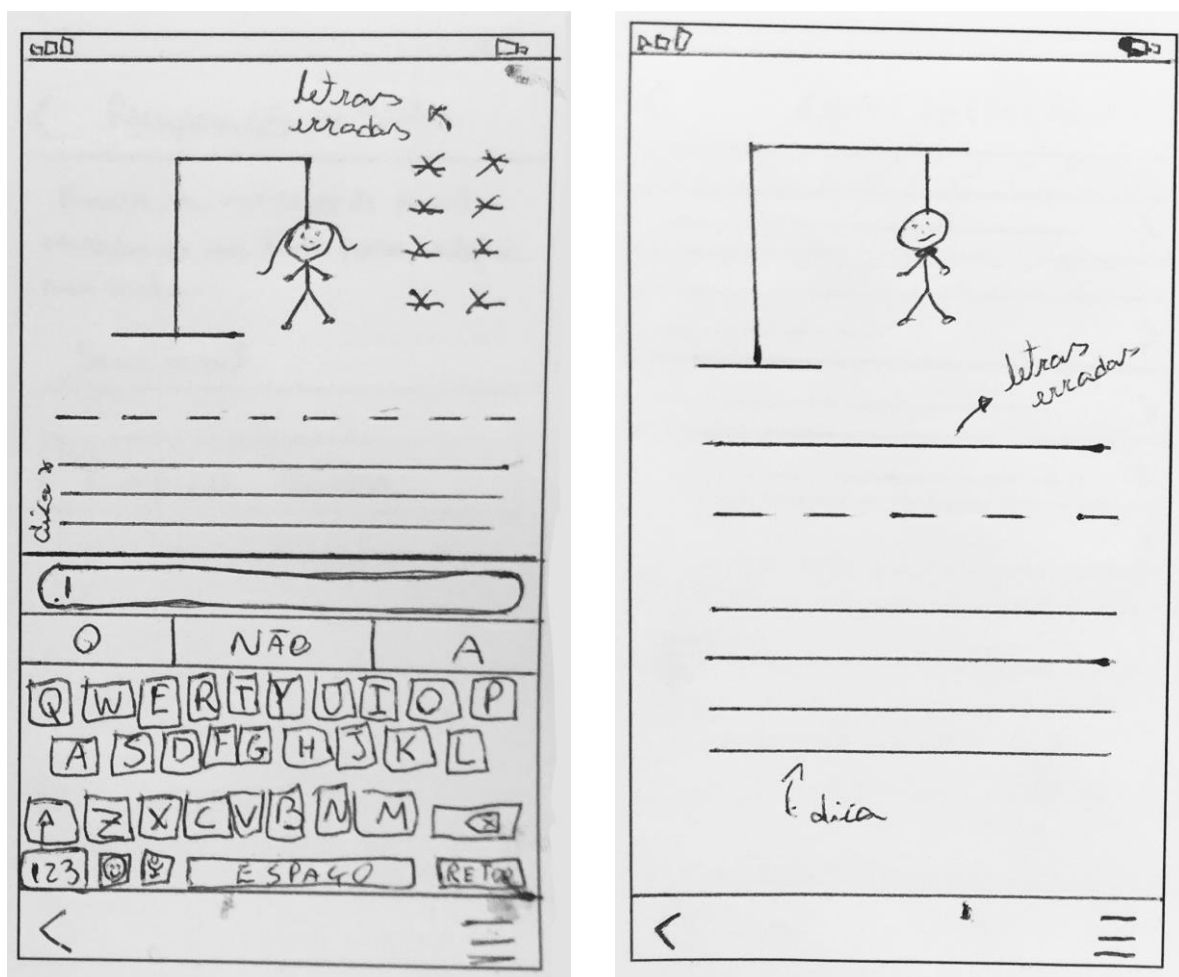 letras
erradas
dica
O NÃO A
Q W E R T Y U I O P
A S D F G H J K L
Z X C V B N M
123 ESPAÇO RETOR
letras
erradas
dica